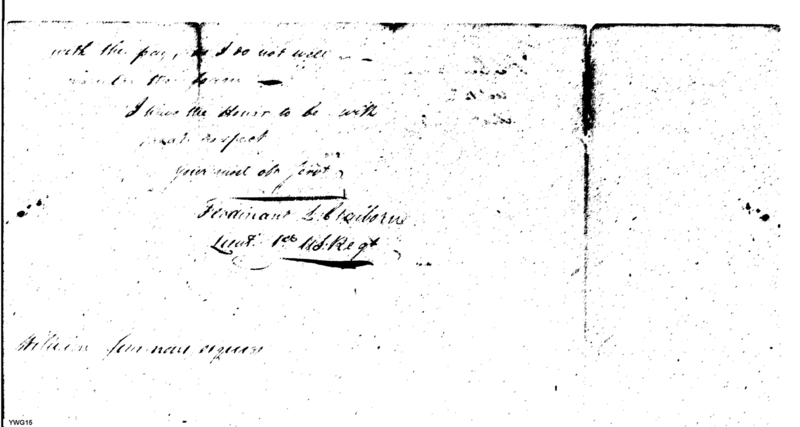 with the pay, as I do not well
I have the Honor to be with
great respect
your most obt Servt
Ferdinand L Claiborne
Lieut. 1st U.S. Regt
William Simmons esquire
YWG15